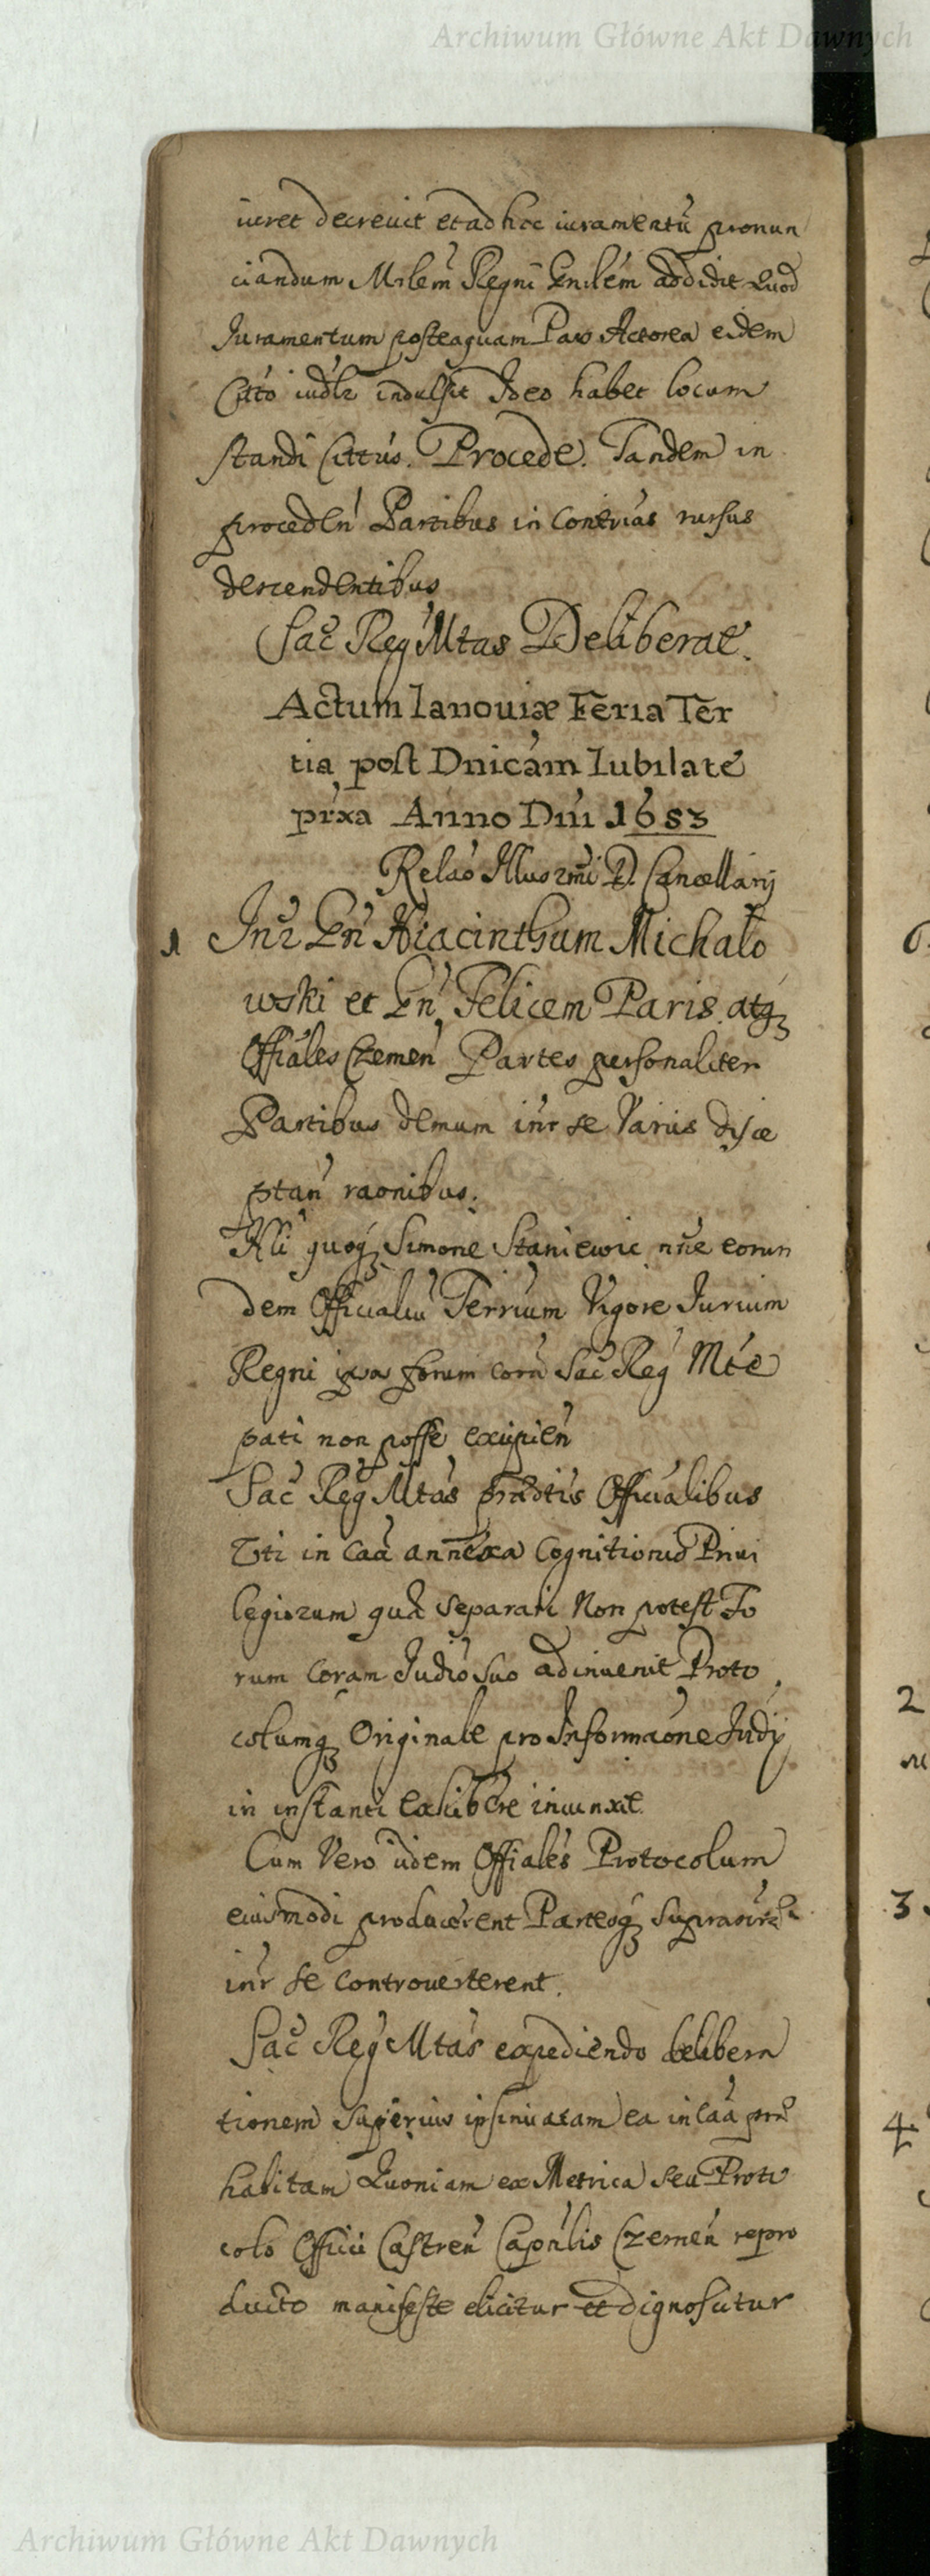 Archiwum Główne Akt Dawnych
iuret decreuit et ad hoc iuramentū pronun
ciandum Mrlem Regni Gnlem addidit Quod
Juramentum posteaquam Pars Actorea eidem
Citto iudlr indulsit Ideo habet locum
standi Cittus. Procede. Tandem in
proceden Partibus in Contrias rursus
descendentibus
Sac Reg Mtas Deliberat.
Actum Ianouiæ Feria Ter
tia post Dnicam Iubilate
prxa Anno Dni 1683
Relao Illusrmi D. Cancellarij
1 Inr Gn Hiacinthum Michało
wski et Gn Felicem Paris atq
Offiales Czemen Partes personaliter
Partibus demum inr se Varijs disce
ptan raonibus.
Illi quoq Simone Staniewic nne eorun
dem Officialiu Terrium Vigore Iurium
Regni ipsos forum cora Sac Reg Mte
pati non posse excipien
Sac Reg Mtas prædtis Officialibus
Vti in caa annexa Cognitionis Priui
legiorum qua separari Non potest Fo
rum Coram Judio suo adinuenit Proto
columq Originale pro Informaone Judij
in instanti exhibere iniunxit.
Cum Vero iidem Offiales Protocolum
eiusmodi producerent Partesq
inr se controuerterent.
Sac Reg Mtas expediendo delibera
tionem superius ipsinuatam ea in caa
habitam Quoniam ex Metrica seu Proto
colo Officii Castren Capnlis Czemen repro
ducto manifeste elicitur et dignoscitur
2
3
4
Archiwum Główne Akt Dawnych